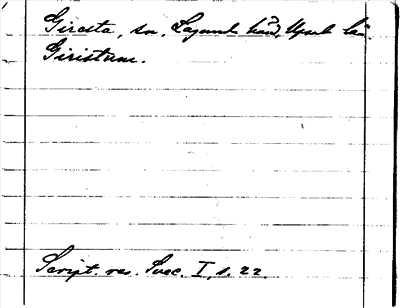 Giresta, sn, Lagunda hd, Upsala län.
Giristum.
Script. res. Svec. I, s. 22